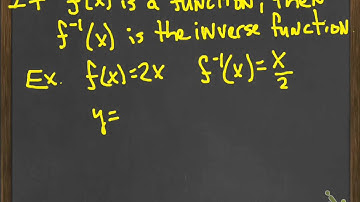 If f(x) is a function, then
f⁻¹(x) is the inverse function
Ex. f(x)=2x f⁻¹(x)=x/2
y=